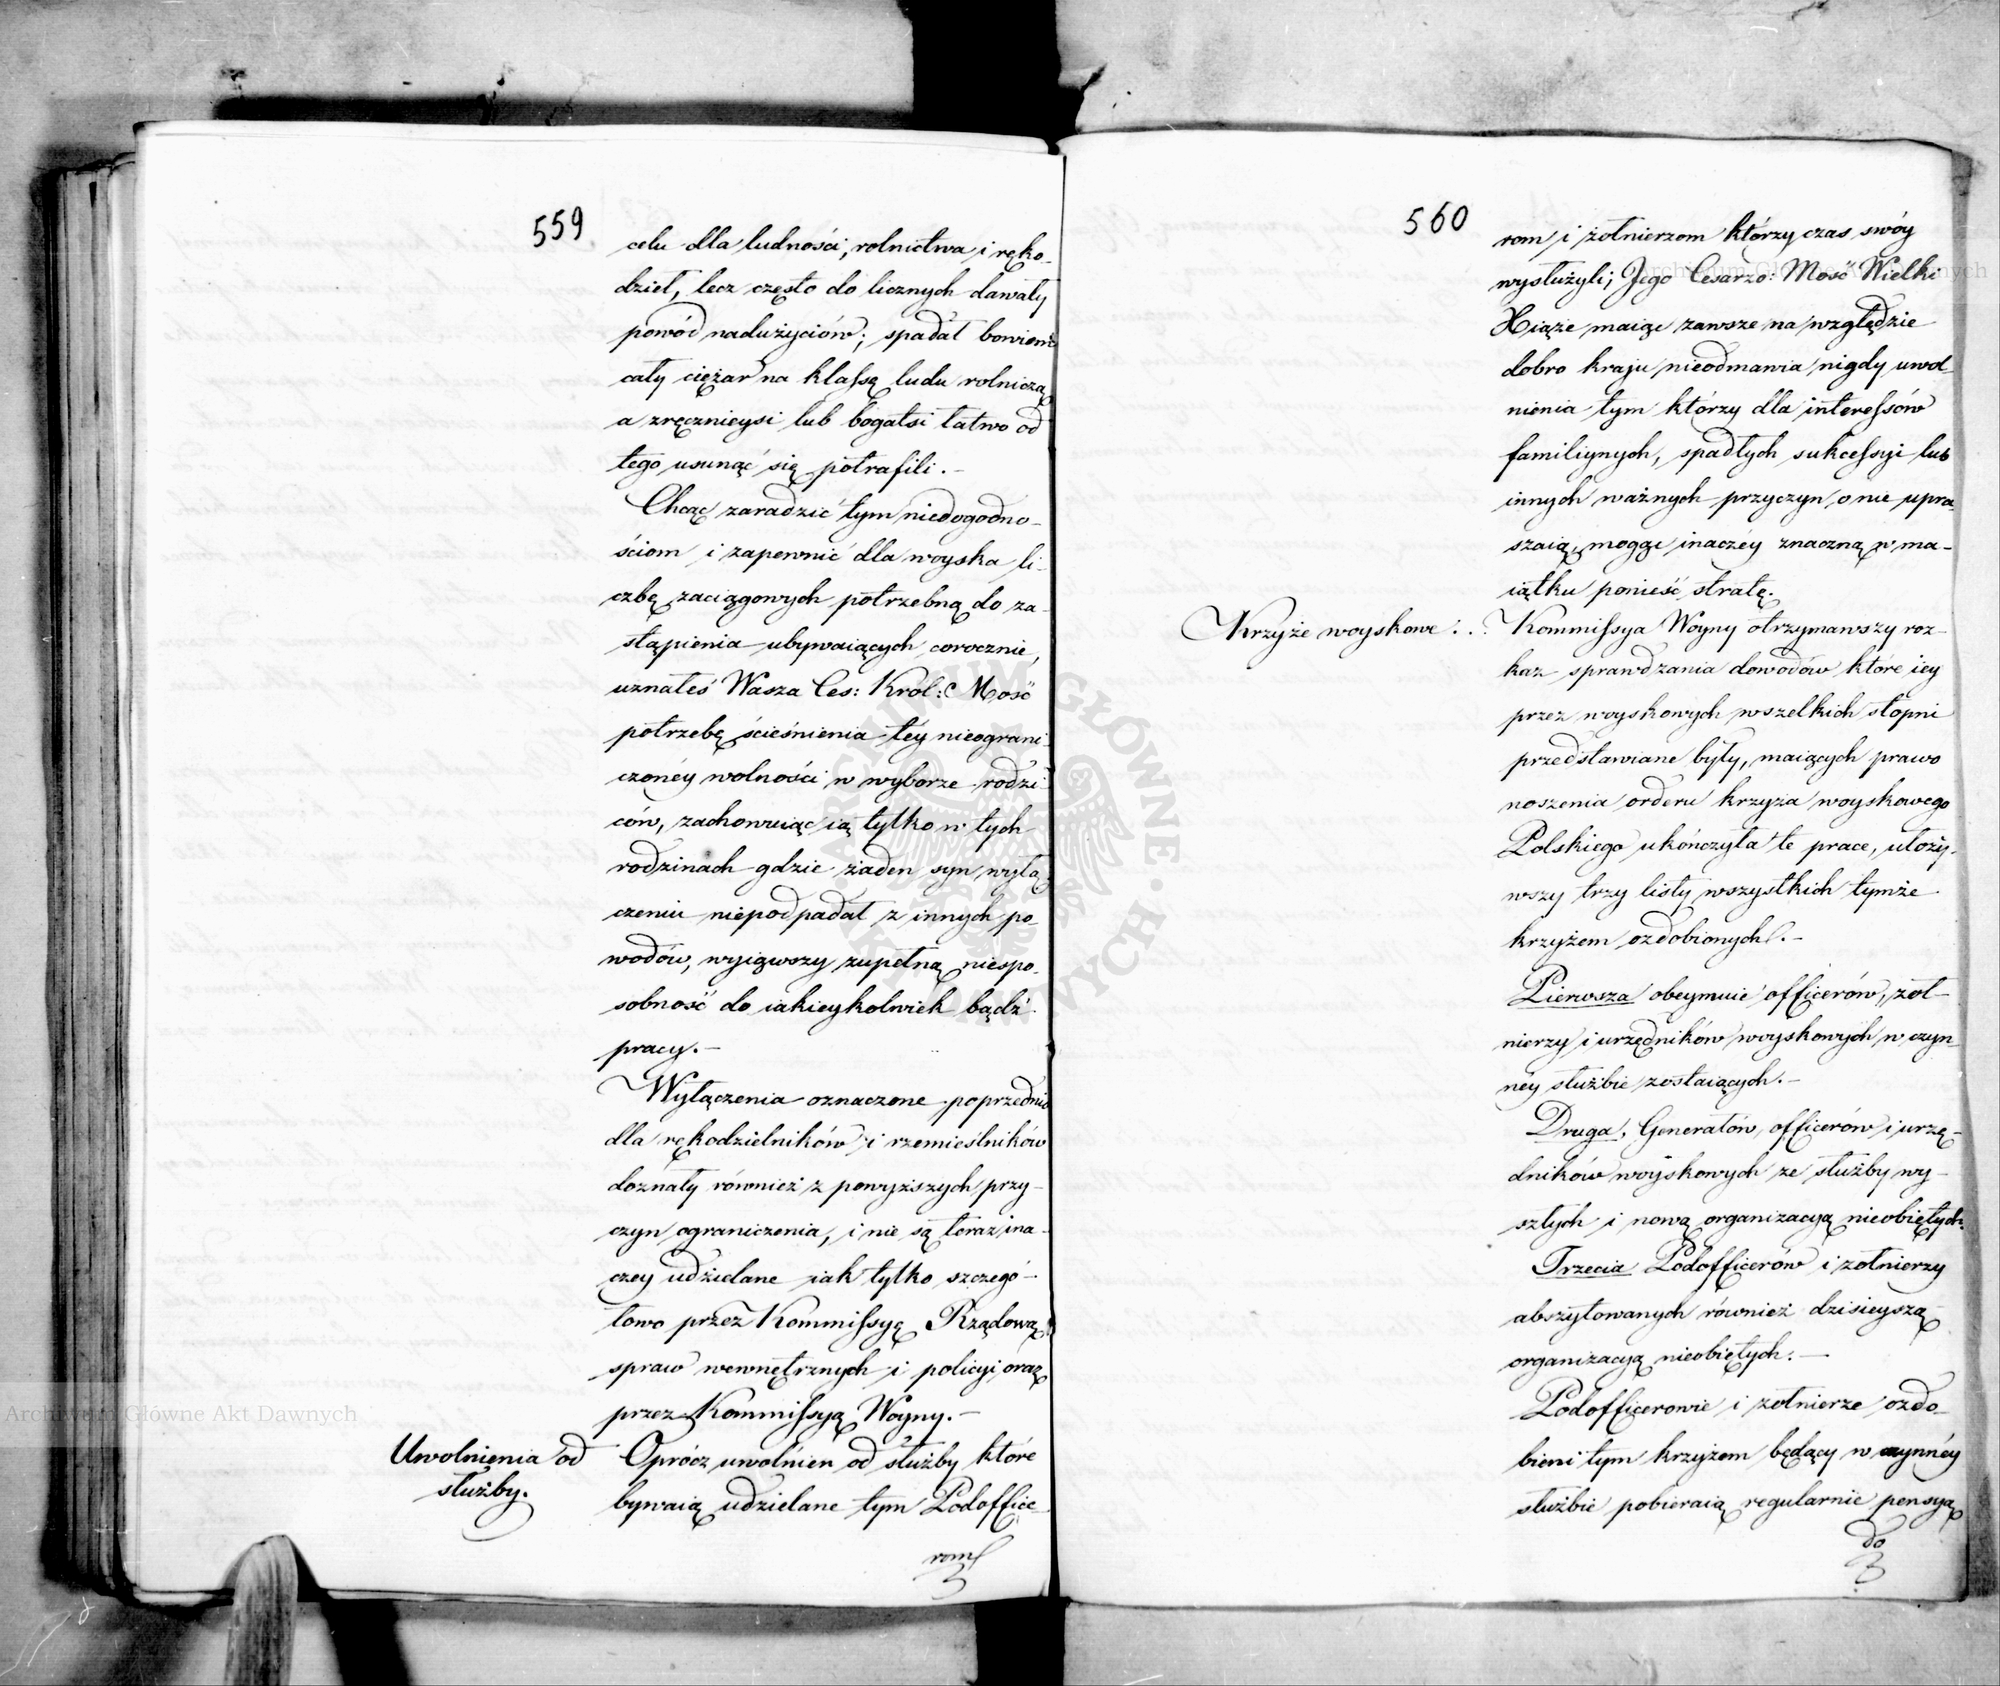 559
celu dla ludności, rolnictwa i ręko-
dzieł, lecz często do licznych dawały
powód nadużyciów; spadał bowiem
cały ciężar na klassę ludu rolniczą
a zręcznieysi lub bogatsi łatwo od
tego usunąć się potrafili.-
Chcąc zaradzić tym niedogodno-
ściom i zapewnić dla woyska li-
czbę zaciągowych potrzebną do za-
stąpienia ubywaiących corocznie,
uznałeś Wasza Ces: Król: Mość
potrzebę ścieśnienia téy nieograni-
czonéy wolności w wyborze rodzi-
ców, zachowuiąc ią tylko w tych
rodzinach gdzie żaden syn wyłą-
czeniu niepodpadał z innych po-
wodów, wyiąwszy zupełną niespo-
sobność do iakieykolwiek bądź
pracy.-
Wyłączenia oznaczone poprzednio
dla rękodzielników i rzemieślników
doznały również z powyższych przy-
czyn ograniczenia, i nie są teraz ina-
czey udzielane iak tylko szczegó-
łowo przez Kommissyę Rządową
spraw wewnętrznych i policyi oraz
przez Kommissyą Woyny.-
Uwolnienia od
służby.
Oprócz uwolnień od służby które
bywaią udzielane tym Podoffice-
rom
560
rom i żołnierzom którzy czas swóy
wysłużyli; Jego Cesarzo: Mość Wielki
Xiąże maiąc zawsze na względzie
dobro kraju nieodmawia nigdy uwol-
nienia tym którzy dla interessów
familiynych, spadłych sukcessyi lub
innych ważnych przyczyn o nie upra-
szaią, mogąc inaczey znaczną w ma-
iątku ponieść stratę.
Krzyże woyskowe . . .
Kommissya Woyny otrzymawszy roz-
kaz sprawdzania dowodów które iey
przez woyskowych wszelkich stopni
przedstawiane były, maiących prawo
noszenia orderu krzyża woyskowego
Polskiego ukończyła te prace, ułoży-
wszy trzy listy wszystkich tymże
krzyżem ozdobionych.-
Pierwsza obeymuie officerów, żoł-
nierzy i urzędników woyskowych w czyn-
néy służbie zostaiących.-
Druga, Generałów, officerów i urzę-
dników woyskowych ze służby wy-
szłych i nową organizacyą nieobiętych.
Trzecia Podofficerów i żołnierzy
abszytowanych również dzisieyszą
organizacyą nieobiętych.-
Podofficerowie i żołnierze ozdo-
bieni tym krzyżem będący w czynnéy
służbie pobieraią regularnie pensyą
do
Archiwum Główne Akt Dawnych
Archiwum Główne Akt Dawnych
ARCHIWUM GŁÓWNE AKT DAWNYCH